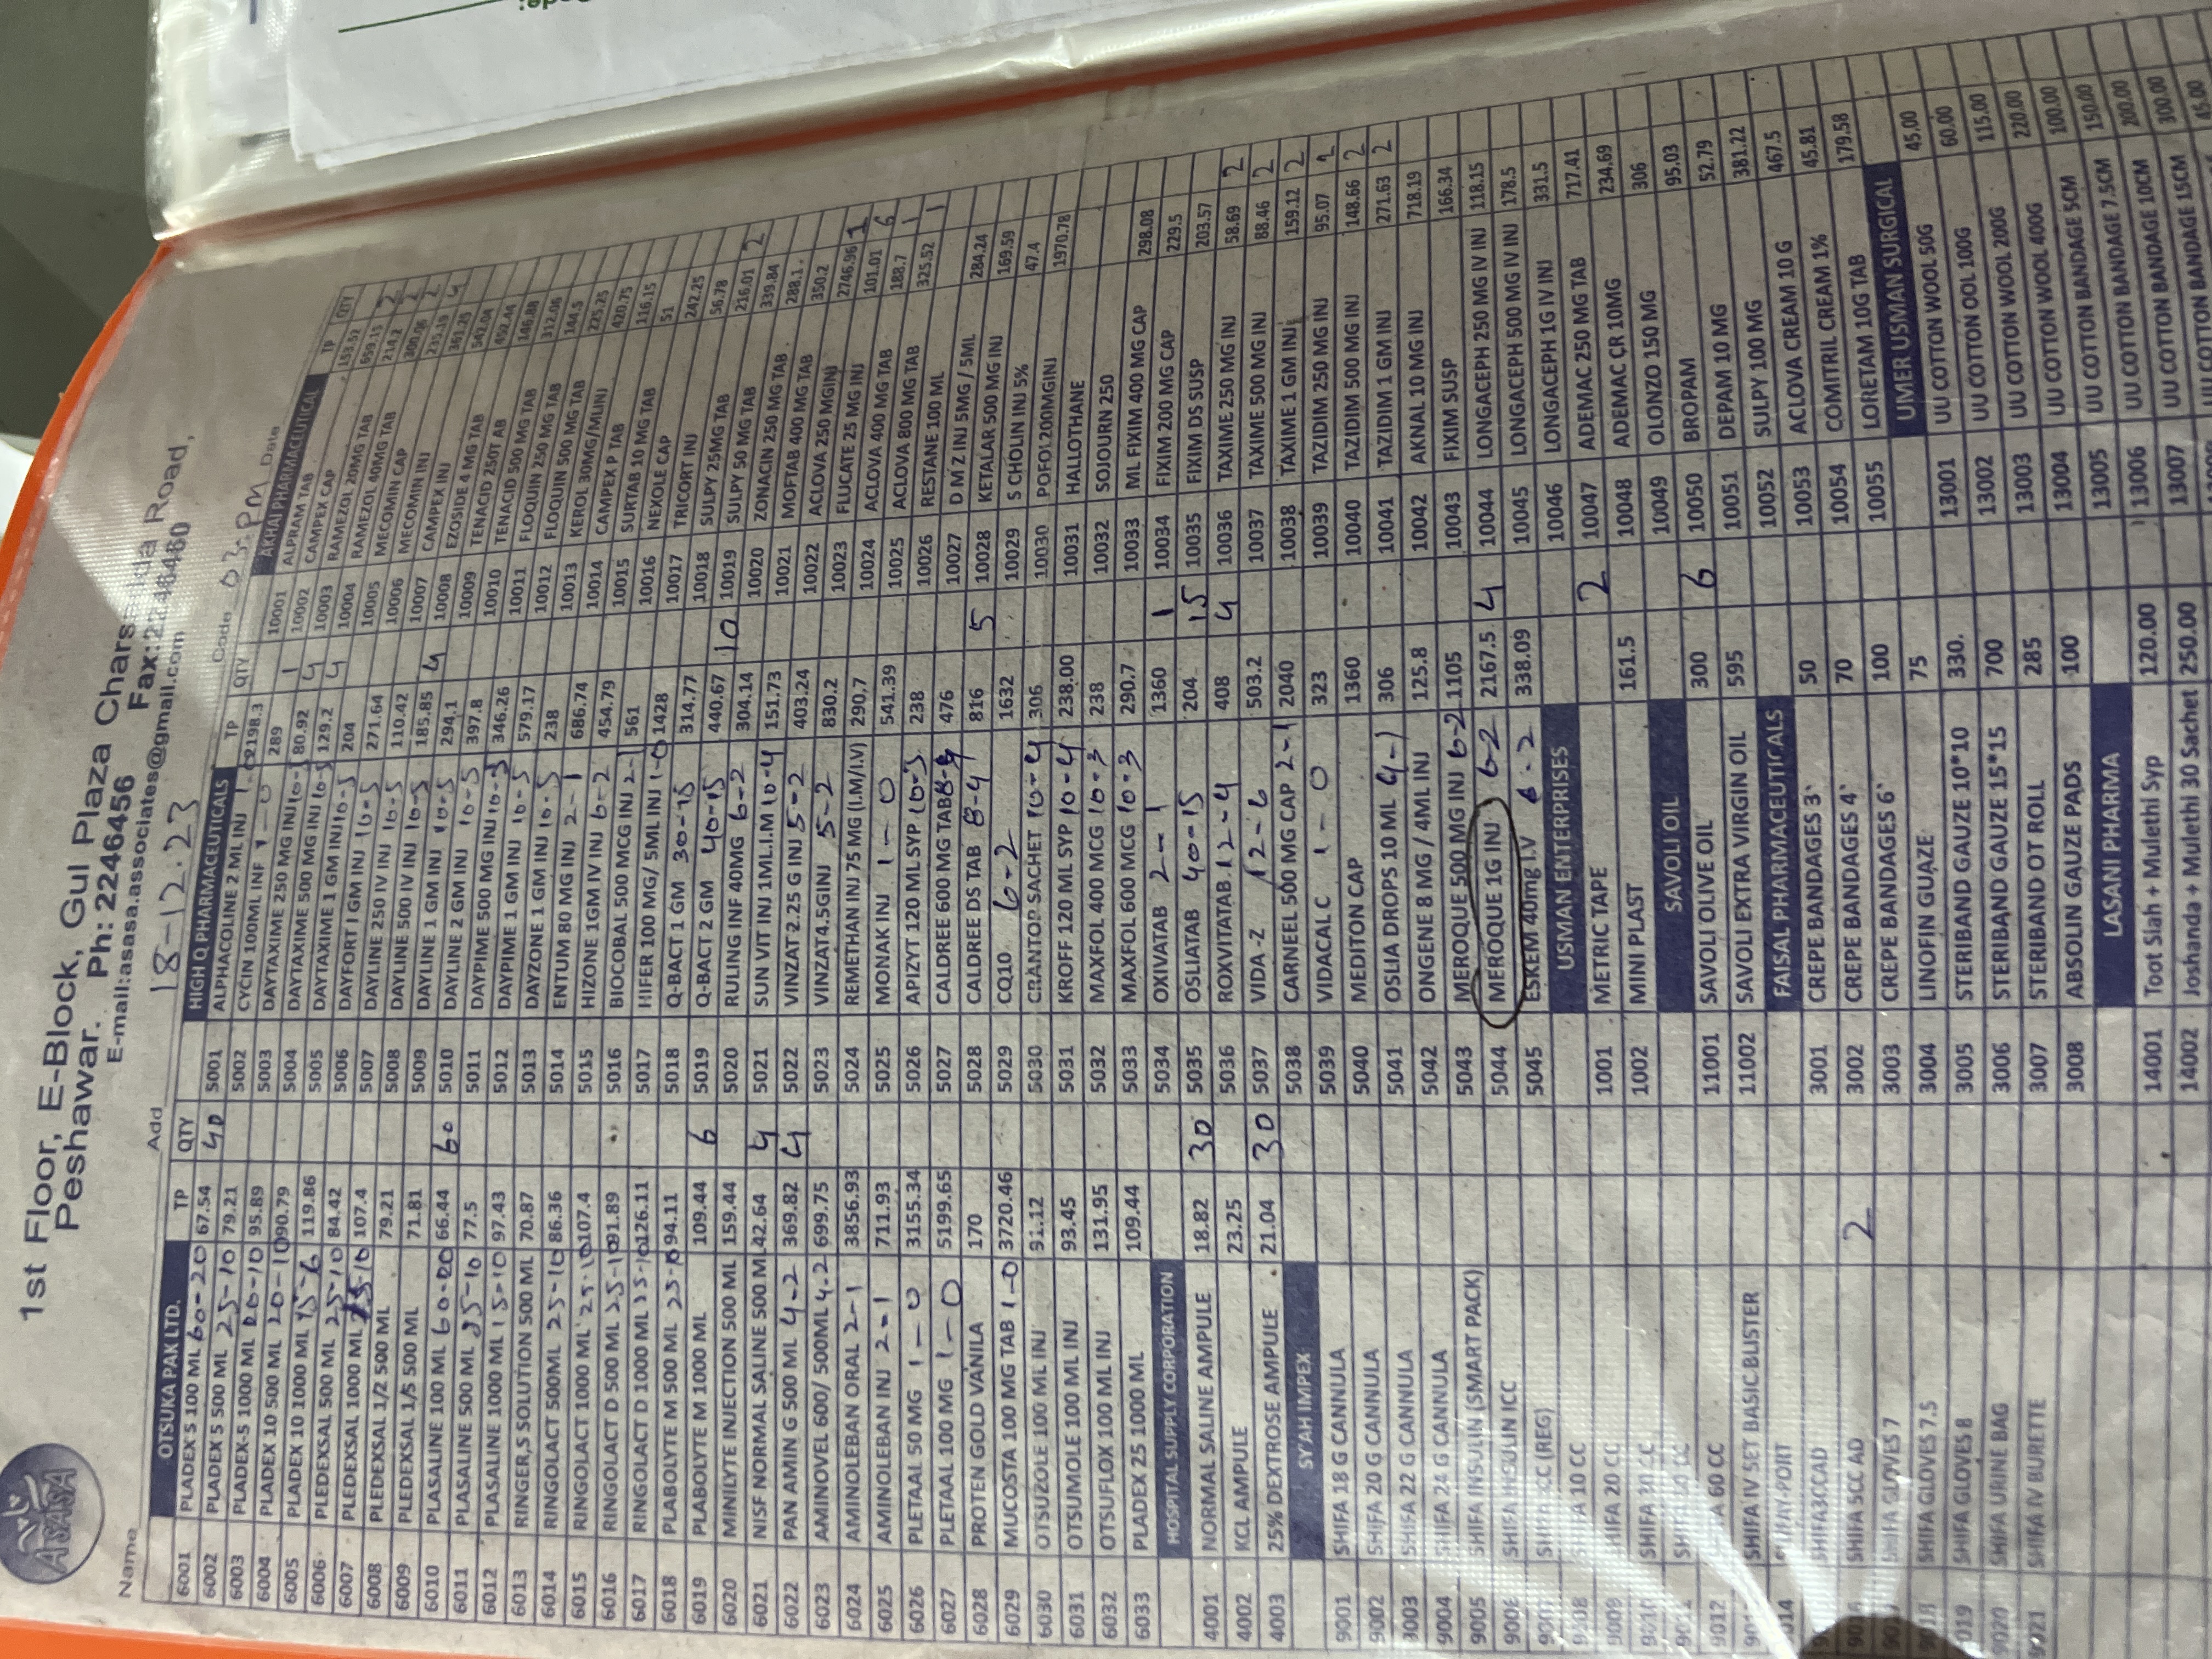 1st Floor, E-Block, Gul Plaza Chars
da Road,
Peshawar. Ph: 2246456 Fax:22 46460
E-mail:asasa.associates@gmail.com
ASASA
Name
Add 18-12.23
Code 03-PM Date
OTSUKA PAK LTD. TP QTY
6001 PLADEX 5 100 ML 60-20 67.54 40
6002 PLADEX 5 500 ML 25-10 79.21
6003 PLADEX-5 1000 ML 20-10 95.89
6004 PLADEX 10 500 ML 20-10 90.79
6005 PLADEX 10 1000 ML 15-6 119.86
6006 PLEDEXSAL 500 ML 25-10 84.42
6007 PLEDEXSAL 1000 ML 25-10 107.4
6008 PLEDEXSAL 1/2 500 ML 79.21
6009 PLEDEXSAL 1/5 500 ML 71.81
6010 PLASALINE 100 ML 60-20 66.44 60
6011 PLASALINE 500 ML 25-10 77.5
6012 PLASALINE 1000 ML 15-10 97.43
6013 RINGER,S SOLUTION 500 ML 70.87
6014 RINGOLACT 500ML 25-10 86.36
6015 RINGOLACT 1000 ML 25-10 107.4
6016 RINGOLACT D 500 ML 25-10 91.89
6017 RINGOLACT D 1000 ML 25-10 126.11
6018 PLABOLYTE M 500 ML 25-10 94.11
6019 PLABOLYTE M 1000 ML 109.44 6
6020 MINILYTE INJECTION 500 ML 159.44
6021 NISF NORMAL SALINE 500 ML 42.64 4
6022 PAN AMIN G 500 ML 4-2 369.82 4
6023 AMINOVEL 600/ 500ML 4-2 699.75
6024 AMINOLEBAN ORAL 2-1 3856.93
6025 AMINOLEBAN INJ 2-1 711.93
6026 PLETAAL 50 MG 1-0 3155.34
6027 PLETAAL 100 MG 1-0 5199.65
6028 PROTEN GOLD VANILA 170
6029 MUCOSTA 100 MG TAB 1-0 3720.46
6030 OTSUZOLE 100 ML INJ 91.12
6031 OTSUMOLE 100 ML INJ 93.45
6032 OTSUFLOX 100 ML INJ 131.95
6033 PLADEX 25 1000 ML 109.44
HOSPITAL SUPPLY CORPORATION
4001 NORMAL SALINE AMPULE 18.82 30
4002 KCL AMPULE 23.25
4003 25% DEXTROSE AMPULE 21.04 30
SYAH IMPEX
9001 SHIFA 18 G CANNULA
9002 SHIFA 20 G CANNULA
9003 SHIFA 22 G CANNULA
9004 SHIFA 24 G CANNULA
9005 SHIFA INSULIN (SMART PACK)
9006 SHIFA INSULIN ICC
SHIFA CC (REG)
9008 SHIFA 10 CC
9009 SHIFA 20 CC
SHIFA CC
SHIFA CC
9012 60 CC
SHIFA IV SET BASIC BLISTER
SHIFA3CCAD
SHIFA 5CC AD 2
SHIFA GLOVES 7
SHIFA GLOVES 7.5
SHIFA GLOVES 8
9020 SHIFA URINE BAG
9021 SHIFA IV BURETTE
HIGH Q PHARMACEUTICALS TP QTY
5001 ALPHACOLINE 2 ML INJ 1-0 2198.3
5002 CYCIN 100ML INF 1-0 289 1
5003 DAYTAXIME 250 MG INJ 10-5 80.92 4
5004 DAYTAXIME 500 MG INJ 10-5 129.2 4
5005 DAYTAXIME 1 GM INJ 10-5 204
5006 DAYFORT I GM INJ 10-5 271.64
5007 DAYLINE 250 IV INJ 10-5 110.42
5008 DAYLINE 500 IV INJ 10-5 185.85
5009 DAYLINE 1 GM INJ 10-5 294.1 4
5010 DAYLINE 2 GM INJ 10-5 397.8
5011 DAYPIME 500 MG INJ 10-5 346.26
5012 DAYPIME 1 GM INJ 10-5 579.17
5013 DAYZONE 1 GM INJ 10-5 238
5014 ENTUM 80 MG INJ 2-1 686.74
5015 HIZONE 1GM IV INJ 6-2 454.79
5016 BIOCOBAL 500 MCG INJ 2-1 561
5017 HIFER 100 MG/ 5ML INJ 1-0 1428
5018 Q-BACT 1 GM 30-15 314.77
5019 Q-BACT 2 GM 40-15 440.67 10
5020 RULING INF 40MG 6-2 304.14
5021 SUN VIT INJ 1ML.I.M 10-4 151.73
5022 VINZAT 2.25 G INJ 5-2 403.24
5023 VINZAT4.5GINJ 5-2 830.2
5024 REMETHAN INJ 75 MG (I.M/I.V) 290.7
5025 MONAK INJ 1-0 541.39
5026 APIZYT 120 ML SYP 10-3 238
5027 CALDREE 600 MG TAB 8-4 476
5028 CALDREE DS TAB 8-4 816 5
5029 CQ10 6-2 1632
5030 CRANTOP SACHET 10-4 306
5031 KROFF 120 ML SYP 10-4 238.00
5032 MAXFOL 400 MCG 10-3 238
5033 MAXFOL 600 MCG 10-3 290.7
5034 OXIVATAB 2-1 1360 1
5035 OSLIATAB 40-15 204 15
5036 ROXVITATAB 12-4 408 4
5037 VIDA -Z 12-6 503.2
5038 CARNEEL 500 MG CAP 2-1 2040
5039 VIDACAL C 1-0 323
5040 MEDITON CAP 1360
5041 OSLIA DROPS 10 ML 4-1 306
5042 ONGENE 8 MG / 4ML INJ 125.8
5043 MEROQUE 500 MG INJ 6-2 1105
5044 MEROQUE 1G INJ 6-2 2167.5 4
5045 ESKEM 40mg I.V 6-2 338.09
USMAN ENTERPRISES
1001 METRIC TAPE 2
1002 MINI PLAST 161.5
SAVOLI OIL
11001 SAVOLI OLIVE OIL 300 6
11002 SAVOLI EXTRA VIRGIN OIL 595
FAISAL PHARMACEUTICALS
3001 CREPE BANDAGES 3` 50
3002 CREPE BANDAGES 4` 70
3003 CREPE BANDAGES 6` 100
3004 LINOFIN GUAZE 75
3005 STERIBAND GAUZE 10*10 330.
3006 STERIBAND GAUZE 15*15 700
3007 STERIBAND OT ROLL 285
3008 ABSOLIN GAUZE PADS 100
LASANI PHARMA
14001 Toot Siah + Mulethi Syp 120.00
14002 Joshanda + Mulethi 30 Sachet 250.00
AKHAI PHARMACEUTICAL TP QTY
10001 ALPRAM TAB 153.52
10002 CAMPEX CAP 659.15 2
10003 RAMEZOL 20MG TAB 214.2 2
10004 RAMEZOL 40MG TAB 300.06 2
10005 MECOMIN CAP 235.19 4
10006 MECOMIN INJ 361.25
10007 CAMPEX INJ 542.04
10008 EZOSIDE 4 MG TAB 492.44
10009 TENACID 250T AB 146.88
10010 TENACID 500 MG TAB 312.06
10011 FLOQUIN 250 MG TAB 144.5
10012 FLOQUIN 500 MG TAB 225.25
10013 KEROL 30MG/MLINJ 420.75
10014 CAMPEX P TAB 116.15
10015 SURTAB 10 MG TAB 51
10016 NEXOLE CAP 242.25
10017 TRICORT INJ 56.78
10018 SULPY 25MG TAB 216.01 2
10019 SULPY 50 MG TAB 339.84
10020 ZONACIN 250 MG TAB 288.1
10021 MOFTAB 400 MG TAB 350.2
10022 ACLOVA 250 MGINJ 2746.96 1
10023 FLUCATE 25 MG INJ 101.01 6
10024 ACLOVA 400 MG TAB 188.7 1
10025 ACLOVA 800 MG TAB 325.52 1
10026 RESTANE 100 ML
10027 D M Z INJ 5MG / 5ML 284.24
10028 KETALAR 500 MG INJ 169.59
10029 S CHOLIN INJ 5% 47.4
10030 POFOL200MGINJ 1970.78
10031 HALLOTHANE
10032 SOJOURN 250
10033 ML FIXIM 400 MG CAP 298.08
10034 FIXIM 200 MG CAP 229.5
10035 FIXIM DS SUSP 203.57
10036 TAXIME 250 MG INJ 58.69 2
10037 TAXIME 500 MG INJ 88.46 2
10038 TAXIME 1 GM INJ 159.12 2
10039 TAZIDIM 250 MG INJ 95.07 2
10040 TAZIDIM 500 MG INJ 148.66 2
10041 TAZIDIM 1 GM INJ 271.63 2
10042 AKNAL 10 MG INJ 718.19
10043 FIXIM SUSP 166.34
10044 LONGACEPH 250 MG IV INJ 118.15
10045 LONGACEPH 500 MG IV INJ 178.5
10046 LONGACEPH 1G IV INJ 331.5
10047 ADEMAC 250 MG TAB 717.41
10048 ADEMAC CR 10MG 234.69
10049 OLONZO 150 MG 306
10050 BROPAM 95.03
10051 DEPAM 10 MG 52.79
10052 SULPY 100 MG 381.22
10053 ACLOVA CREAM 10 G 467.5
10054 COMITRIL CREAM 1% 45.81
10055 LORETAM 10G TAB 179.58
UMER USMAN SURGICAL
13001 UU COTTON WOOL 50G 45.00
13002 UU COTTON OOL 100G 60.00
13003 UU COTTON WOOL 200G 115.00
13004 UU COTTON WOOL 400G 220.00
13005 UU COTTON BANDAGE 5CM 100.00
13006 UU COTTON BANDAGE 7.5CM 150.00
13007 UU COTTON BANDAGE 10CM 200.00
UU COTTON BANDAGE 15CM 300.00